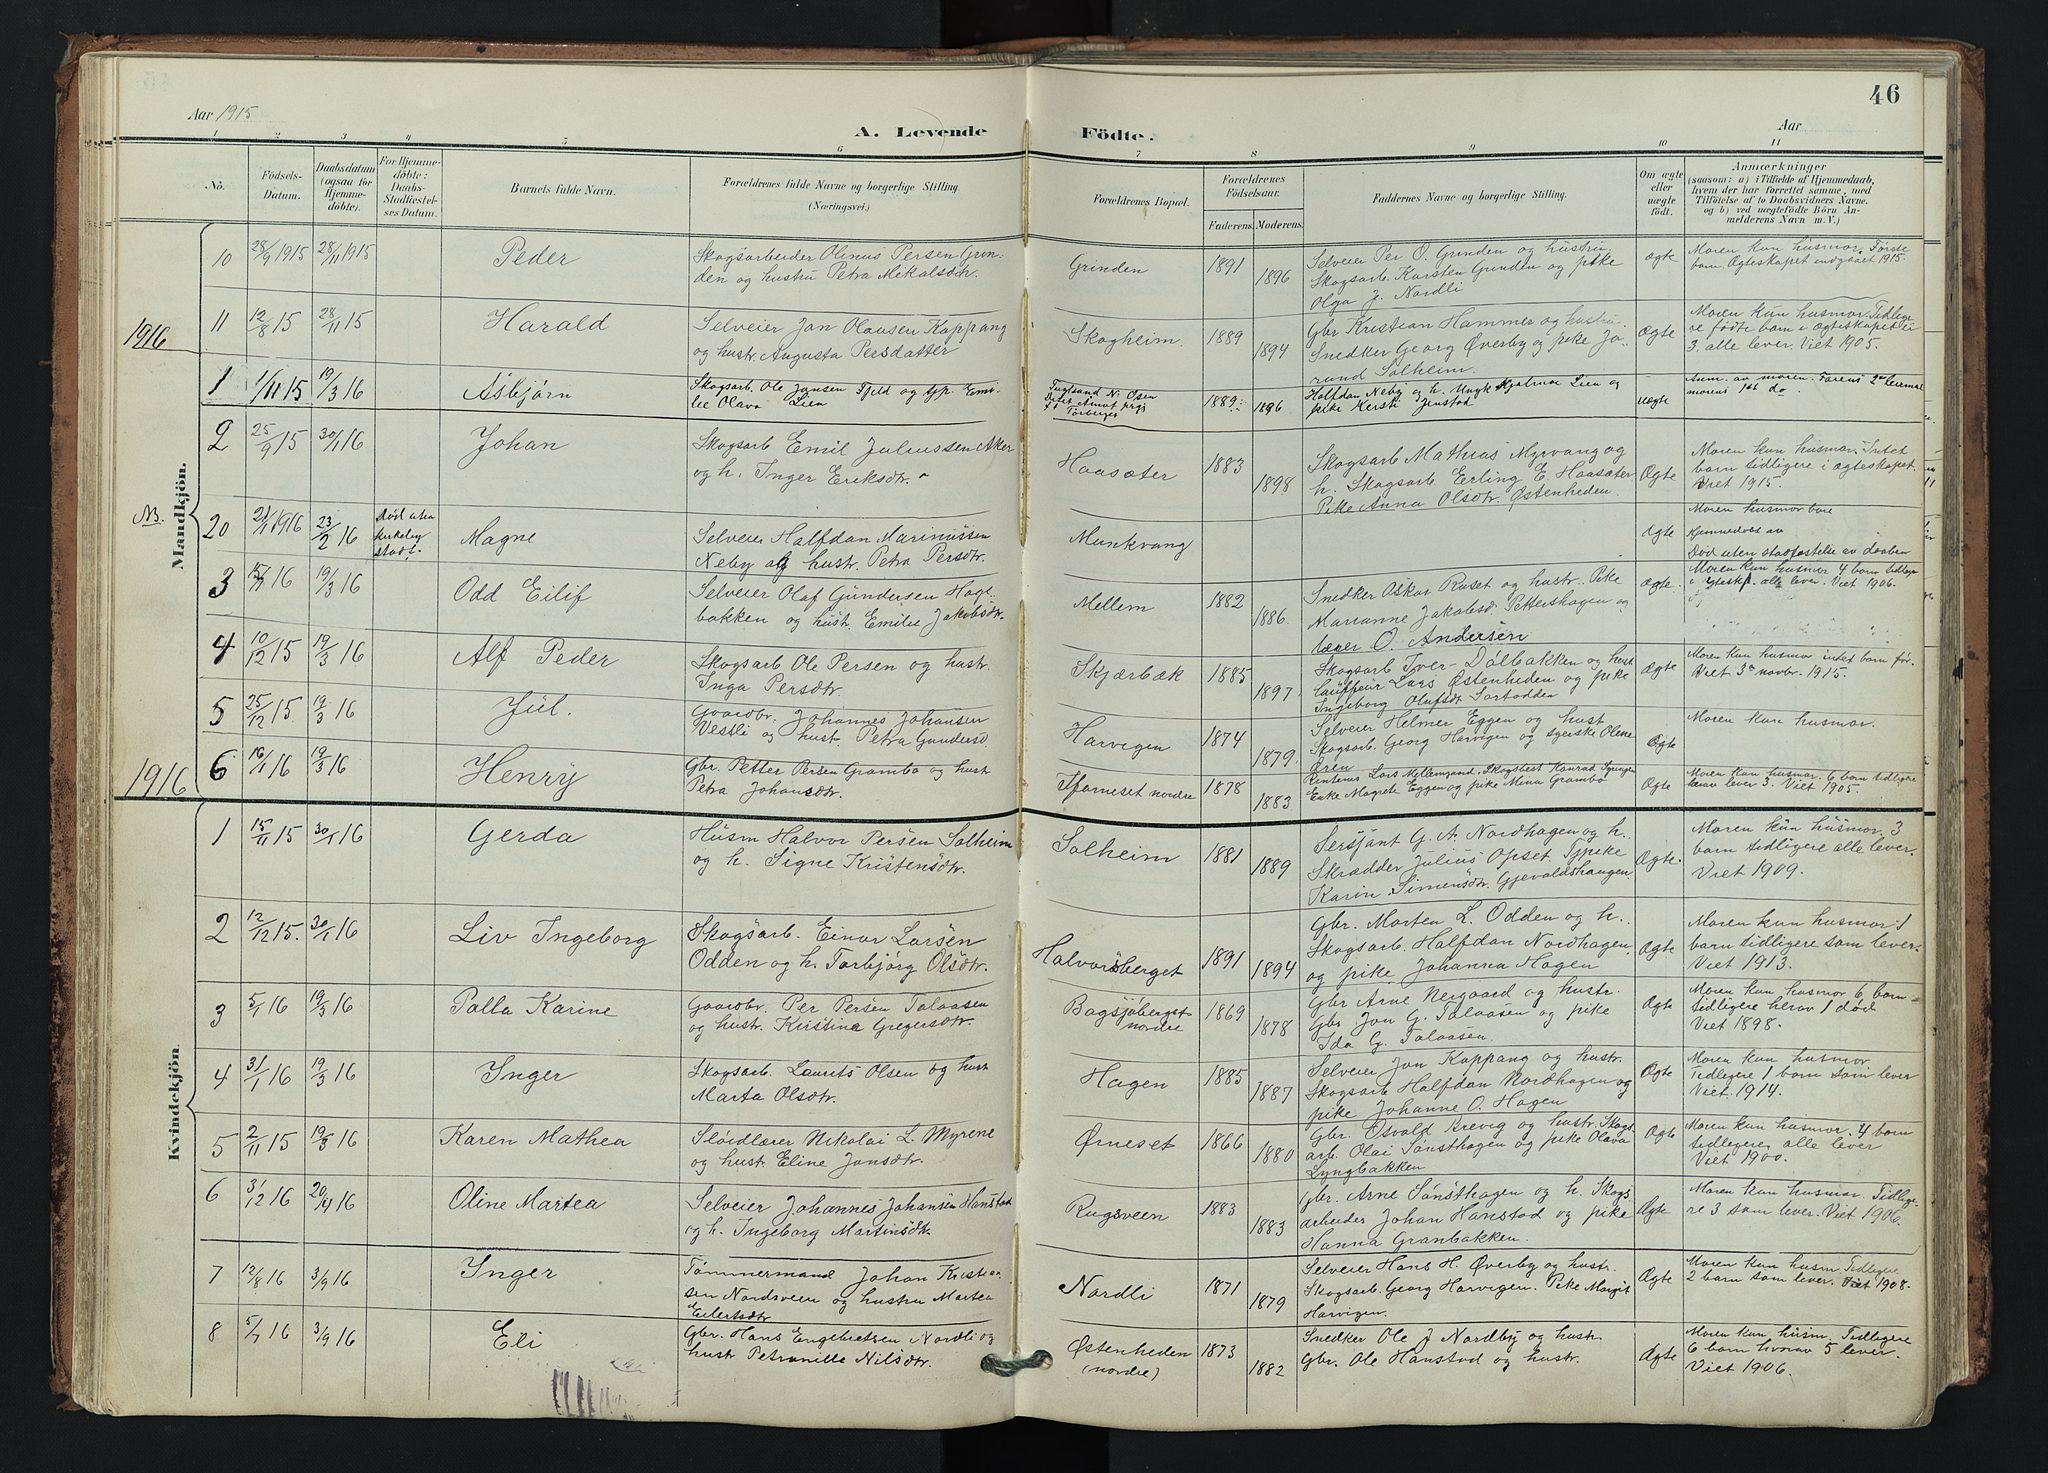 46
Aar 1915
A. Levende
Födte.
Aar
1 2 3 4 5 6 7 8 9 10 11
No.
Födsels-Datum.
Daabsdatum (ogsaa for Hjemme-döbte).
For Hjemme-döbte: Daabs-Stadfæstel-ses Datum.
Barnets fulde Navn.
Forældrenes fulde Navne og borgerlige Stilling.
(Næringsvei.)
Forældrenes Bopæl.
Forældrenes Födselsaar.
Faderens. Moderens.
Faddernes Navne og borgerlige Stilling.
Om ægte eller uægte födt.
Anmærkninger
(saasom: a) i Tilfælde af Hjemmedaab,
hvem der har forrettet samme, med
Tilföielse af to Daabsvidners Navne.
og b) ved uægtefödte Börn An-
melderens Navn m. V.)
Mandkjön.
10 28/9 1915 28/11 1915 Peder
Skogsarbeider Olinus Persen Grin-
den og hustru Petra Mikalsdtr.
Grinden 1891 1896
Selveier Per O. Grinden og hustru.
Skogsarb. Karsten Grinden og pike
Olga J. Nordli
ægte
Moren kun husmor. Første
barn. Ægteskapet indgaaet 1915.
1916
11 12/8 15 28/11 15 Harald
Selveier Jan Olausen Kappang
og hustr. Augusta Persdatter
Skogheim. 1889 1894
Gbr Kristian Hammer og hustru.
Snedker Georg Øverby og pike Jo-
rund Solheim.
Ægte
Moren kun husmor. Tidlige
re fødte barn i ægteskapet
3. alle lever. Viet 1905.
1 1/11 15 19/3 16 Asbjørn
Skogsarb. Ole Jansen Fjeld og tjp. Emi-
lie Olava Lien
1889 1896
Halfdan Neby og h. Hjalmar Lien og
pike Kersti Jenstad
uægte
Anm. av moren. Farens 2det leiermal
morens 1st do
2 25/9 15 30/1 16 Johan
Skogsarb Emil Juliussen Aker
og h. Inger Eriksdtr.
Haasæter 1883 1898
Skogsarb Mathias Myrvang og
h. Skogsarb Erling E. Haasæter
Pike Anna Olsdtr. Østenheden.
Ægte
Moren kun husmor. Intet
barn tidligere i ægteskapet.
Viet 1915.
NB.
20 21/1 1916 23/2 16 Død uten kirkelig stadf. Magne
Selveier Halfdan Marinussen
Neby og hustr. Petra Persdtr.
Munkvang
Ægte
Moren husmor bare
Hjemmedøbt av
Død uten stadfæstelse av daaben
3 15/1 16 19/3 16 Odd Eilif
Selveier Olaf Gundersen Hage-
bakken og hustr. Emilie Jakobsdtr.
Mellem 1882 1886.
Snedker Oskar Ruset og hustr. Pike
Marianne Jakobsd. Pettershagen og
lærer O. Andersen
Ægte
Moren kun husmor 4 barn tidlige
i ægteskp. alle lever. Viet 1906.
4 10/12 15 19/3 16 Alf Peder
Skogsarb Ole Persen og hustr.
Inga Persdtr.
Skjærbæk 1885 1897.
Skogsarb Iver Dølbakken og hust
Lars Østenheden og pike
Ingeborg Olufsdt Sortodden
Ægte
Moren kun husmor intet barn før.
Viet 3. novbr. 1915.
5 25/12 15 19/3 16 Jul.
Gaardbr. Johannes Johansen
Vessli og hust. Petra Gundersd.
Harvigen 1874 1879.
Selveier Helmer Eggen og hust
Skogsarb. Georg Harvigen og syerske Oline
Øren
Ægte
Moren kun husmor.
1916
6 16/1 16 19/3 16 Henry
Gbr. Petter Persen Grambo og hust
Petra Johansdtr.
nordre 1878 1883
Lars Mellemsand, Skogsbest Konrad
Enke Magrete Eggen og pike Mina Grambo
Ægte
Moren kun husmor. 6 barn tidligere
herav lever 3. Viet 1905.
Kvindekjön.
1 15/11 15 30/1 16 Gerda
Husm Halvor Persen Solheim
og h. Signe Kristensdtr.
Solheim 1881 1889
Sersjant G. A. Nordhagen og h.
Skrædder Julius Opset. Tjpike
Karin Simensdtr. Gjevaldshaugen
Ægte.
Moren kun husmor. 3
barn tidligere alle lever.
Viet 1909.
2 12/12 15. 30/1 16 Liv Ingeborg
Skogsarb. Einar Larsen
Odden og h. Torbjørg Olsdtr.
Halvorsberget 1891 1894
Gbr. Morten L. Odden og h.
Skogsarb. Halfdan Nordhagen,
og pike Johanna Hagen
Ægte
Moren kun husmor 1
barn tidligere som lever.
Viet 1913.
3 5/1 16 19/3 16 Palla Karine
Gaardbr. Per Persen Talaasen
og hustr. Kristine Gregersdtr.
Bagsjøberget
nordre 1869 1878
Gbr Arne Neigaard og hustr.
Gbr Jon G. Talaasen og pike
Ida G. Talaasen.
Ægte
Moren kun husmor 6 barn
tidligere herav 1 død
Viet 1898.
4 31/1 16 19/3 16 Inger
Skogsarb. Laurits Olsen og hust
Marta Olsdtr.
Hagen 1885 1887
Selveier Jon Kappang og hustr.
Skogsarb Halfdan Nordhagen og
pike Johanne O. Hagen
Ægte
Moren kun husmor.
Tidligere 1 barn som lever
Viet 1914.
5 2/11 15 19/3 16 Karen Mathea
Sløidlærer Nikolai L. Myrene
og hust. Eline Jonsdtr.
Ørneset 1866 1880
Gbr. Osvald Krevig og hustr. Skogs
arb. Olai Sønsthagen og pike Olava
Lyngbakken
Ægte
Moren kun husmor. 4 barn
tidligere alle lever
Viet 1900.
6 31/12 16 20/4 16 Oline Martea
Selveier Johannes Johansen Hanstad
og h. Ingeborg Martinsdtr.
Rugsveen 1883 1883
Gbr. Arne Sønsthagen og h. Skogs
arbeider Johan Hanstad og pike
Hanna Granbakken.
Ægte
Moren kun husmor. Tidlige
re 3 som lever. Viet 1906.
7 12/8 16 3/9 16 Inger
Tømmermand Johan Kristian-
sen Nordsveen og hustru Martea
Eilertsdtr
Nordli 1871 1879
Selveier Hans H. Øverby og hustr.
Skogsarb. Georg Harvigen. Pike Margit
Harvigen.
Ægte
Moren kun husm Tidligere
2 barn som lever. Viet 1908.
8 5/7 16 3/9 16 Eli
Gbr. Hans Engebretsen Nordli og
hustr Petronille Nilsdtr.
Østenheden
(nordre) 1873 1882
Snedker Ole J. Nordby og hustr.
Gbr. Ole Hanstad og hustr.
Ægte
Moren kun husm. Tidligere
6 barn hvorav 5 lever.
Viet 1906.